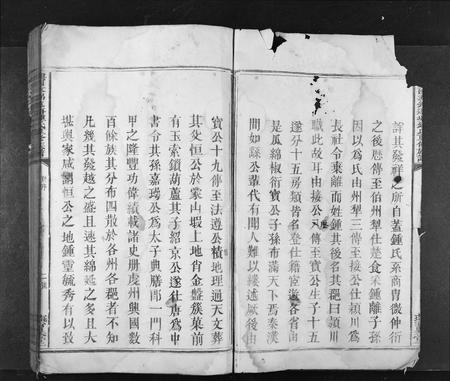 譯其發祥之所自蓋鍾氏系商胄微仲衍
之後歷傳至伯州犁仕楚食采鍾離子孫
因以爲氏由州犁三傳至接公仕潁川爲
長社令東離而姓鍾其後名其邑曰潁川
職此故耳由接公傳至寶公生子十五
遂分十五房類皆名登仕籍宦遊各省由
是瓜綿椒衍寶公子孫布滿天下焉秦漢
間如繇公輩代有聞人難以縷述厥後由
寶公十九傳至法遵公積地理通天文葬
其父恒公於蒙山蝦上地肖金盤簇菓前
有玉索鎖葫蘆其子紹京公遂仕唐爲中
書令其孫嘉璓公爲太子典膳郎一門科
甲之隆豐功偉績載諸史册虔州興國數
百餘族其分布四散於各州各邑者不知
凡幾其發越之盛且速其綿延之多且大
堪輿家咸謂恒公之地鍾靈毓秀有以致